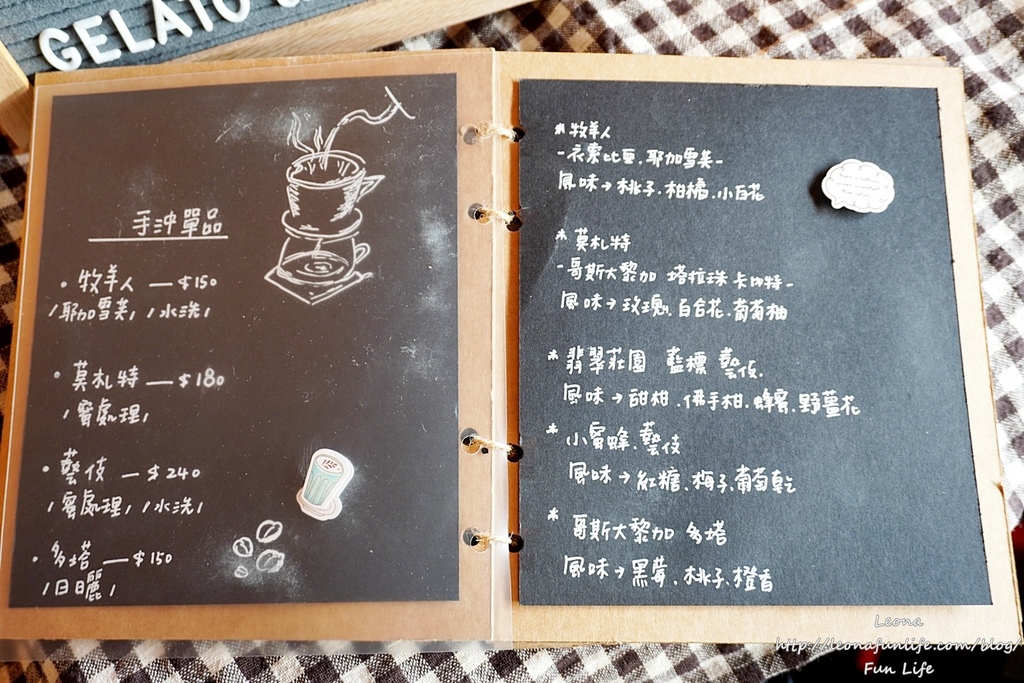 GELATO
手沖單品
• 牧羊人 — $150
/耶加雪芙/ /水洗/
• 莫札特 — $180
/蜜處理/
• 藝伎 — $240
/蜜處理/ /水洗/
• 多塔 — $150
/日曬/
* 牧羊人
-衣索比亞.耶加雪芙-
風味→桃子.柑橘.小白花
* 莫札特
-哥斯大黎加 塔拉珠 卡內特-
風味→玫瑰.百合花.葡萄柚
* 翡翠莊園 藍標 藝伎.
風味→甜柑.佛手柑.蜂蜜.野薑花
* 小蜜蜂.藝伎
風味→紅糖.梅子.葡萄乾
* 哥斯大黎加 多塔
風味→黑莓.桃子.橙香
Leona
http://leonafunlife.com/blog/
Fun Life